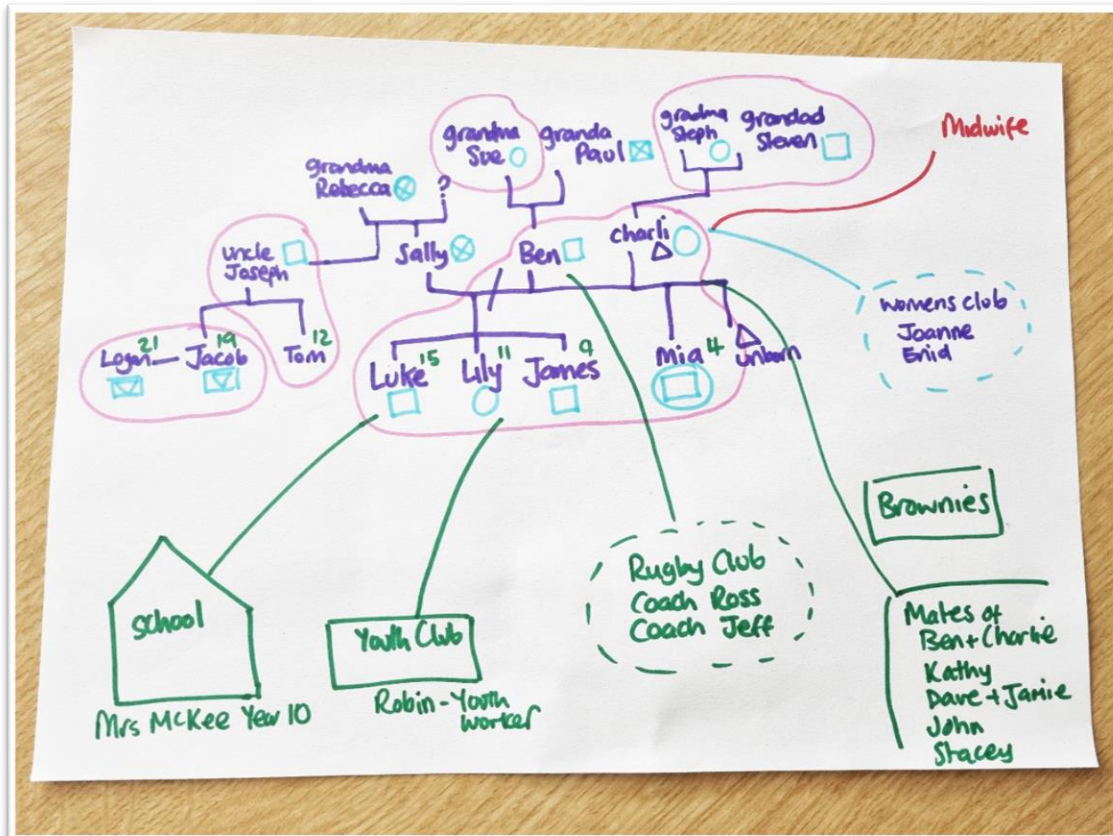 grandma
Sue
granda
Paul
gradma
Steph
grandad
Steven
Midwife
grandma
Rebecca
?
uncle
Joseph
Sally
Ben
charli
womens club
Joanne
Enid
Logan 21
Jacob 19
Tom 12
Luke 15
Lily 11
James 9
Mia 4
unborn
Brownies
school
Mrs McKee Year 10
Youth Club
Robin - Youth
worker
Rugby Club
Coach Ross
Coach Jeff
Mates of
Ben + Charlie
Kathy
Dave + Jamie
John
Stacey